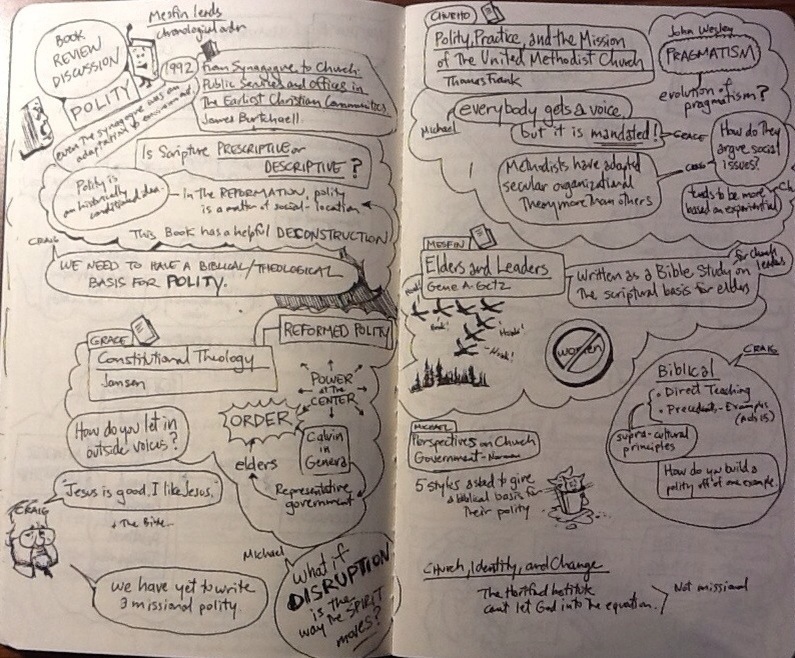 BOOK
REVIEW
DISCUSSION
Mesfin lends
POLITY
1992
From Synagogue to Church:
Public Services and Offices in
The Earliest Christian Communities
James Burtchaell
even the synagogue was an
adaptation to environment.
Is Scripture PRESCRIPTIVE or
DESCRIPTIVE?
Polity is
an historically
conditioned idea.
In the REFORMATION, polity
is a matter of social-location
This Book has a helpful DECONSTRUCTION
CRAIG
WE NEED TO HAVE A BIBLICAL/THEOLOGICAL
BASIS FOR POLITY.
REFORMED POLITY
GRACE
Constitutional Theology
Jansen
POWER
at The
CENTER
ORDER
Calvin
in
Geneva
elders
Representative
government
How do you let in
outside voices?
"Jesus is good. I like Jesus."
CRAIG
+ The Bible
we have yet to write
a missional polity.
Michael
What if
DISRUPTION
is the
way the SPIRIT
moves?
Polity, Practice, and the Mission
of The United Methodist Church
Thomas Frank
John Wesley
PRAGMATISM
evolution of
pragmatism?
everybody gets a voice
Michael
but it is mandated!
GRACE
How do They
argue social
issues?
CRAIG
Methodists have adapted
secular organizational
Theory more Than others
tends to be more
based on experiential
MESFIN
Elders and Leaders
Gene A. Getz
written as a Bible Study on
The scriptural basis for elders
for church
leaders
Honk!
Honk!
Honk!
Honk!
women
CRAIG
Biblical
• Direct Teaching
• Precedent - Examples
(Acts 15)
supra-cultural
principles
How do you build a
polity off of one example.
MICHAEL
Perspectives on Church
Government - Norman
5 styles asked to give
a biblical basis for
their polity
Church, Identity, and Change
The Hartford Institute
can't let God into the equation.
Not missional